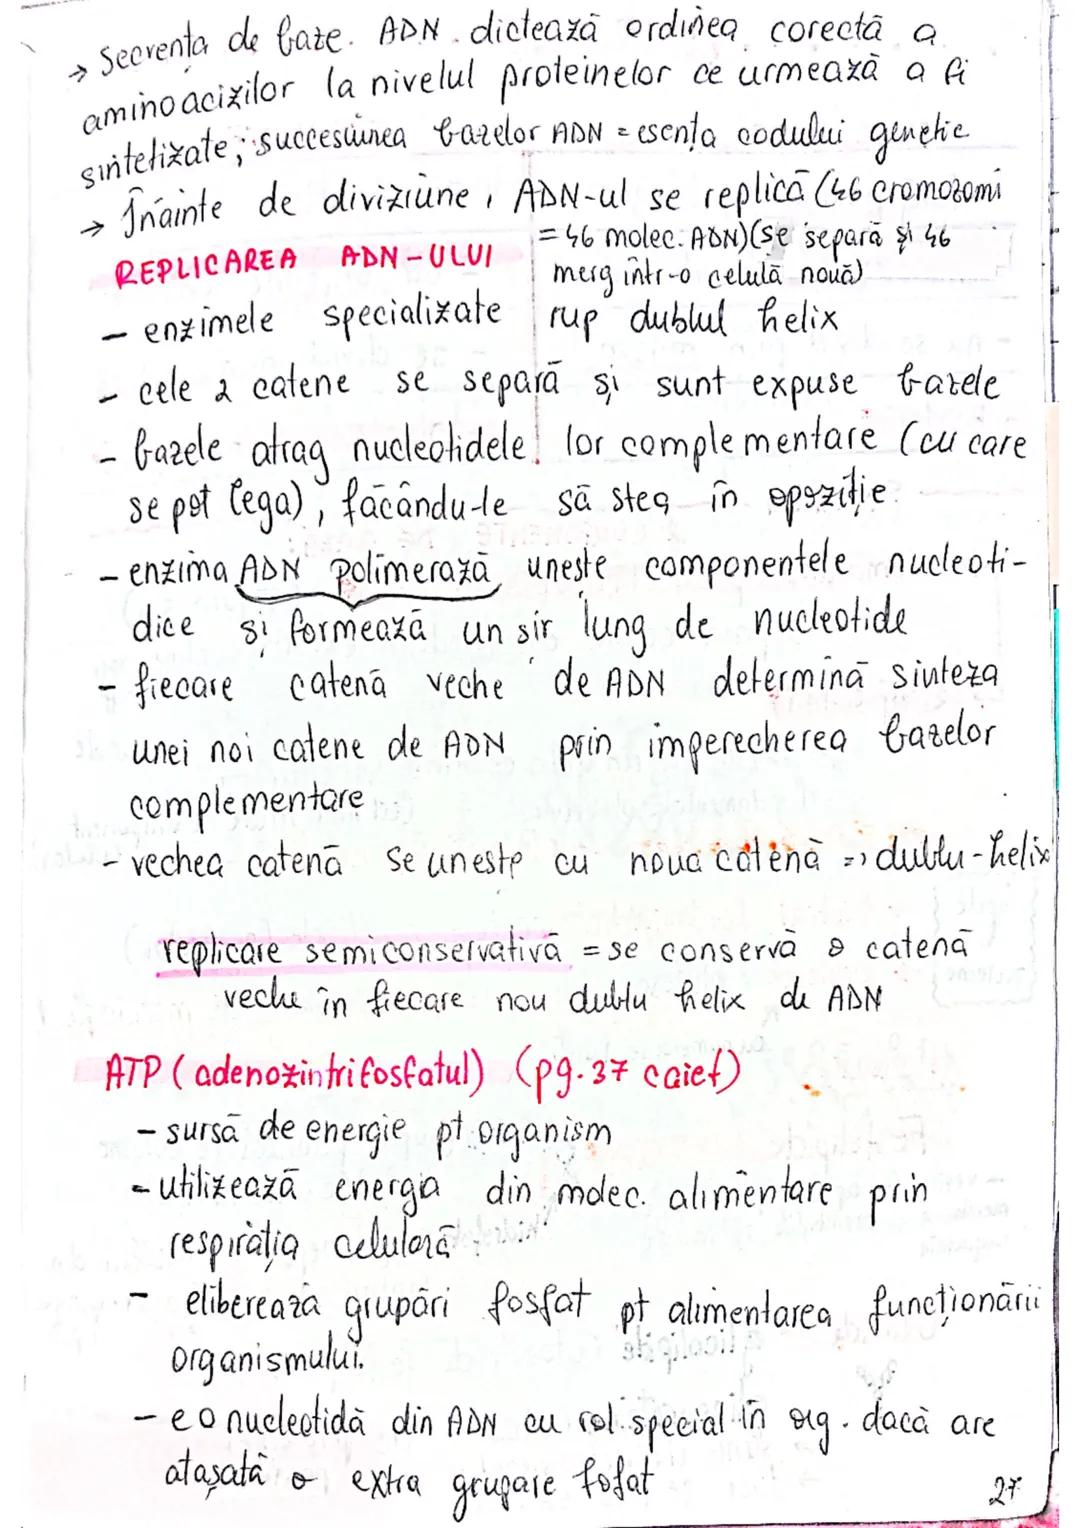 → Secvența de baze ADN dictează ordinea corectă a
aminoacizilor la nivelul proteinelor ce urmează a fi
sintetizate; succesiunea bazelor ADN = esența codului genetic
→ Înainte de diviziune, ADN-ul se replică (46 cromozomi
= 46 molec. ADN) (se separă și 46
merg într-o celulă nouă)
REPLICAREA ADN-ULUI
- enzimele specializate rup dublul helix
- cele 2 catene se separă și sunt expuse bazele
- bazele atrag nucleotidele lor complementare (cu care
se pot lega), făcându-le să stea în opoziție
- enzima ADN polimerază unește componentele nucleoti-
dice și formează un șir lung de nucleotide
- fiecare catenă veche de ADN determină sinteza
unei noi catene de ADN prin imperecherea bazelor
complementare
- vechea catenă se unește cu noua catenă => dublu-helix
replicare semiconservativă = se conservă o catenă
veche în fiecare nou dublu helix de ADN
ATP (adenozintrifosfatul) (pg. 37 caiet)
- sursă de energie pt organism
- utilizează energia din molec. alimentare prin
respirația celulară
- eliberează grupări fosfat pt alimentarea funcționării
organismului.
- e o nucleotidă din ADN cu rol special în org. dacă are
atașată o extra grupare fofat
27